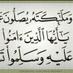 وملئكته يصلون على
يأيها الذين ءامنوا
عليه وسلموا